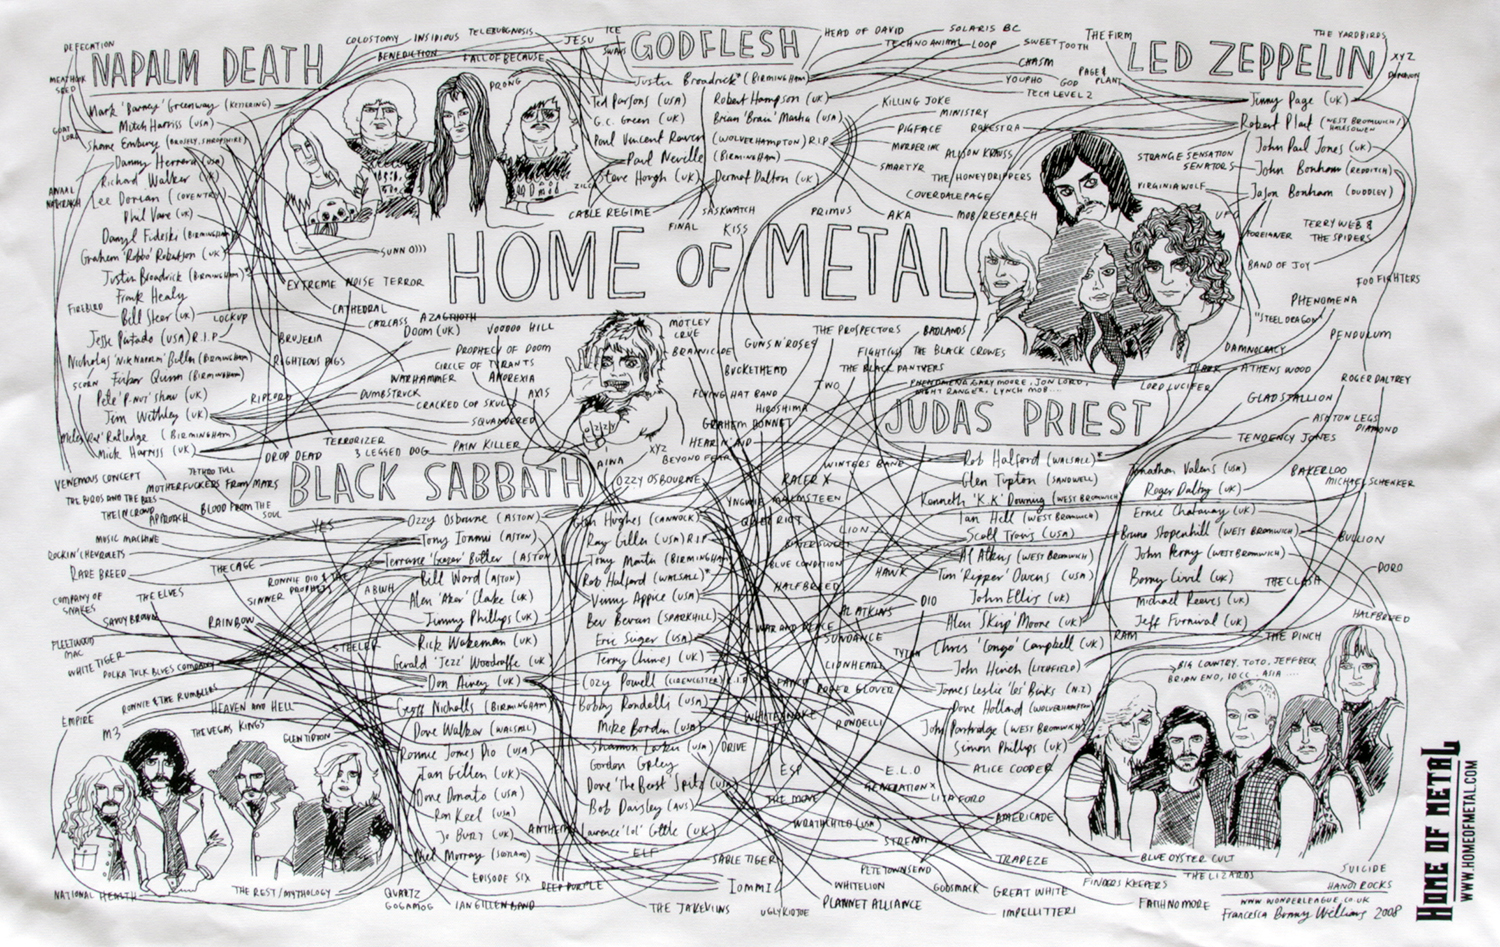 NAPALM DEATH
DEFECATION
COLOSTOMY
INSIDIOUS
BENEDICTION
FALL OF BECAUSE
JESU
ICE
SWANS
PRONG
Mark 'Barney' Greenway (KETTERING)
Mitch Harriss (USA)
Shane Embury (BROSELEY, SHROPSHIRE)
Danny Herrera (USA)
Richard Walker (UK)
Lee Dorrian (COVENTRY)
Phil Vane (UK)
Graham 'Robbo' Robertson (UK)
Justin Broadrick (BIRMINGHAM)*
Frank Healy
Bill Steer (UK)
Jesse Pintado (USA) R.I.P
Nicholas 'Nik Napalm' Bullen (Birmingham)
Finbar Quinn (BIRMINGHAM)
Pete 'P-Nut' Shaw (UK)
Jim Withley (UK)
Mick Harriss (UK)
FIREBIRD
LOCKUP
SCORN
RIPCORD
BRUJERIA
RIGHTEOUS PIGS
DROP DEAD
SUNN O)))
EXTREME NOISE TERROR
CATHEDRAL
CARCASS
GODFLESH
Justin Broadrick* (BIRMINGHAM)
Ted Parsons (USA)
G.C. Green (UK)
Paul Vincent Raven (WOLVERHAMPTON) R.I.P
Paul Neville (BIRMINGHAM)
Steve Hough (UK)
Robert Hampson (UK)
Dermot Dalton (UK)
HEAD OF DAVID
TECHNO ANIMAL
LOOP
SOLARIS BC
SWEET TOOTH
CHASM
YOUPHO
GOD
TECH LEVEL 2
KILLING JOKE
MINISTRY
PIGFACE
MURDER INC
SMARTYR
CABLE REGIME
SASKWATCH
FINAL
KISS
PRIMUS
AKA
MOB RESEARCH
LED ZEPPELIN
THE FIRM
THE YARDBIRDS
XYZ
PAGE & PLANT
Jimmy Page (UK)
Robert Plant (WEST BROMWICH/HALESOWEN
John Paul Jones (UK)
John Bonham (REDDITCH)
Jason Bonham (DUDLEY)
ALISON KRAUSS
THE HONEYDRIPPERS
COVERDALE PAGE
STRANGE SENSATION
SENATORS
VIRGINIA WOLF
UFO
FOREIGNER
TERRY WEB &
THE SPIDERS
BAND OF JOY
FOO FIGHTERS
PHENOMENA
"STEEL DRAGON"
PENDULUM
DAMNOCRACY
ATHENS WOOD
LORD LUCIFER
ROGER DALTREY
GLADSTALLION
TENDENCY JONES
BAKERLOO
MICHAEL SCHENKER
HOME OF METAL
DOOM (UK)
VOODOO HILL
PROPHECY OF DOOM
CIRCLE OF TYRANTS
WARHAMMER
ANOREXIA
DUMBSTRUCK
AXIS
CRACKED COP SKULLS
SQUANDERED
TERRORIZER
3 LEGGED DOG
PAIN KILLER
MOTLEY CRUE
BRAINICIDE
GUNS N' ROSES
BUCKETHEAD
FLYING HAT BAND
HIROSHIMA
GRAHAM BONNET
HEAR N' AID
BEYOND FEAR
XYZ
AINA
OZZY OSBOURNE
THE PROSPECTORS
BADLANDS
FIGHT (UK)
THE BLACK CROWES
THE BLACK PANTHERS
TWO
BLACK SABBATH
Ozzy Osbourne (ASTON)
Tony Iommi (ASTON)
Terrance 'Geezer' Butler (ASTON
Bill Ward (ASTON)
Jimmy Phillips (UK)
Rick Wakeman (UK)
Gerald 'Jezz' Woodroffe (UK)
Don Airey (UK)
Geoff Nicholls (BIRMINGHAM)
Dave Walker (WALSALL)
Ronnie James Dio (USA)
Ian Gillen (UK)
Dave Donato (USA)
Ron Keel (USA)
Jo Burt (UK)
Glen Hughes (CANNOCK)
Ray Gillen (USA) R.I.P
Tony Martin (BIRMINGHAM)
Rob Halford (WALSALL)*
Vinny Appice (USA)
Bev Bevan (SPARKHILL)
Eric Singer (USA)
Terry Chimes (UK)
Cozy Powell (CIRENCESTER) R.I.P
Bobby Rondelli (USA)
Mike Bordin (USA)
Shannon Larkin (USA)
Gordon Copley
Dave 'The Beast' Spitz (USA)
Bob Daisley (AUS)
VENEMOUS CONCEPT
JETHRO TULL
MOTHERFUCKERS FROM MARS
THE BIRDS AND THE BEES
THE IN CROWD
APPROACH
BLOOD FROM THE SOUL
YES
MUSIC MACHINE
ROCKIN' CHEVROLETS
RARE BREED
THE CAGE
COMPANY OF SNAKES
THE ELVES
RONNIE DIO & THE
PROPHETS
SINNER
ABWH
SAVOY BROWN
RAINBOW
FLEETWOOD MAC
STEELER
WHITE TIGER
POLKA TULK BLUES COMPANY
EMPIRE
RONNIE & THE RUMBLERS
HEAVEN AND HELL
M3
THE VEGAS KINGS
GLEN TIPTON
NATIONAL HEALTH
THE REST/MYTHOLOGY
QUARTZ
GOGMAGOG
IAN GILLEN BAND
EPISODE SIX
DEEP PURPLE
ELF
ANTHEM
THE JAKEVIINS
IOMMI
SABLE TIGER
UGLY KID JOE
JUDAS PRIEST
Rob Halford (WALSALL)*
Glen Tipton (SANDWELL)
Kenneth 'K.K' Downing (WEST BROMWICH
Ian Hill (WEST BROMWICH)
Scott Travis (USA)
Al Atkins (WEST BROMWICH)
Tim 'Ripper' Owens (USA)
John Ellis (UK)
Alan 'Skip' Moore (UK)
Chris 'Congo' Campbell (UK)
John Hinch (LICHFIELD)
James Leslie 'Les' Binks (N.I)
Dave Holland (WOLVERHAMPTON)
John Partridge (WEST BROMWICH)
Simon Phillips (UK)
Jonathan Valens (USA)
Roger Daltry (UK)
Ernie Chataway (UK)
Bruno Stapenhill (WEST BROMWICH)
John Perry (WEST BROMWICH)
Barry Civil (UK)
Michael Reeves (UK)
Jeff Furnival (UK)
WINTERS BANE
RACER X
YNGWIE MALMSTEEN
QUIET RIOT
LION
BITTERSWEET
BLUE CONDITION
HALFBREED
HAWK
DIO
AL ATKINS
WAR AND PEACE
SUNDANCE
LIONHEART
ROGER GLOVER
WHITESNAKE
RONDELLI
DRIVE
ESP
E.L.O
THE MOVE
GENERATION X
LITA FORD
ALICE COOPER
WRATHCHILD (USA)
AMERICADE
STREAM
TRAPEZE
PETE TOWNSEND
WHITELION
GODSMACK
GREAT WHITE
PLANNET ALLIANCE
IMPELLITERI
FINGERS KEEPERS
FAITH NO MORE
BLUE OYSTER CULT
THE LIZARDS
BULLION
DORO
THE CLASH
HALFBREED
RAM
THE PINCH
BIG COUNTRY, TOTO, JEFF BECK
BRIAN ENO, 10CC, ASIA ...
SUICIDE
HANOI ROCKS
WWW.WONDERLEAGUE.CO.UK
Francesca Bonny Williams 2008
HOME OF METAL
WWW.HOMEOFMETAL.COM